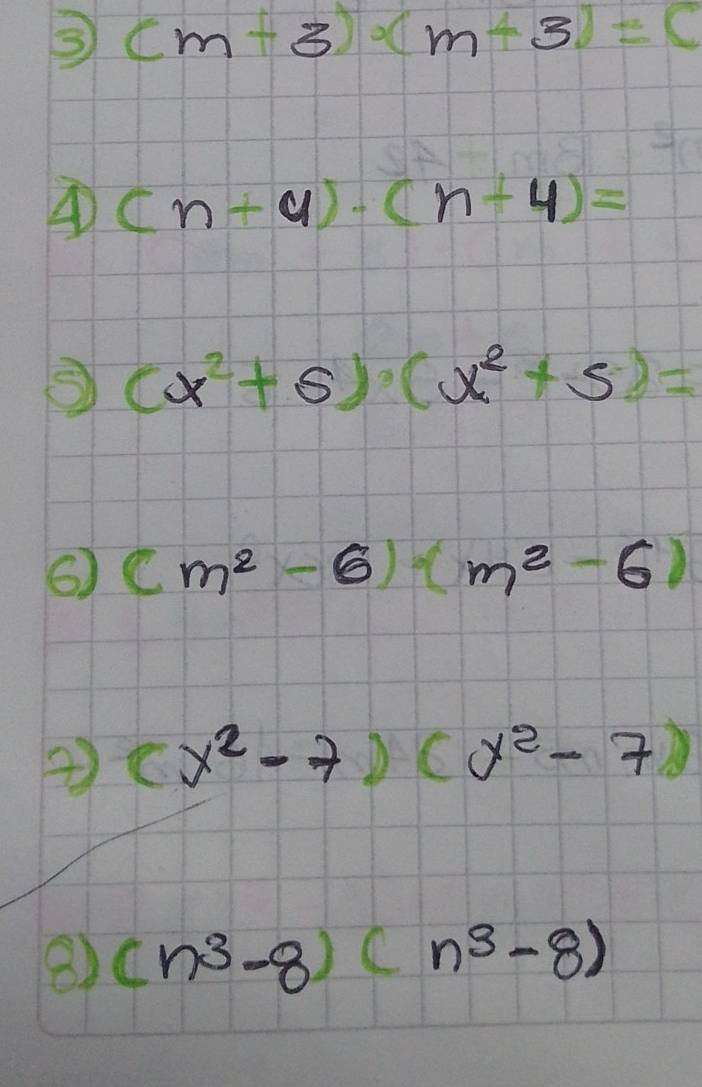 3) (m + 3) · (m + 3) = (
4) (n + 4) · (n + 4) =
5) (x² + 5) · (x² + 5) =
6) (m² - 6) · (m² - 6)
7) (y² - 7) (y² - 7)
8) (n³ - 8) (n³ - 8)